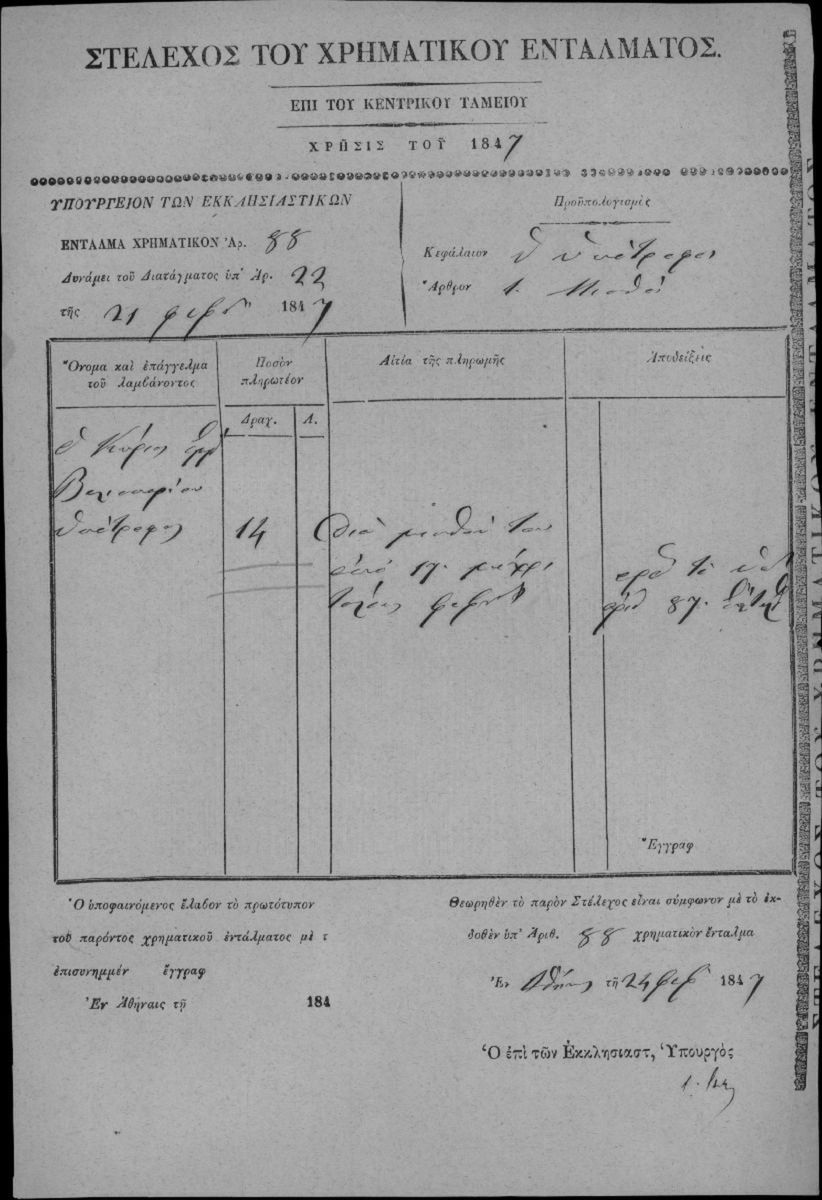 ΣΤΕΛΕΧΟΣ ΤΟΥ ΧΡΗΜΑΤΙΚΟΥ ΕΝΤΑΛΜΑΤΟΣ.
ΕΠΙ ΤΟΥ ΚΕΝΤΡΙΚΟΥ ΤΑΜΕΙΟΥ
ΧΡΗΣΙΣ ΤΟΥ 1847
ΥΠΟΥΡΓΕΙΟΝ ΤΩΝ ΕΚΚΛΗΣΙΑΣΤΙΚΩΝ
ΕΝΤΑΛΜΑ ΧΡΗΜΑΤΙΚΟΝ Ἀρ. 88
Δυνάμει τοῦ Διατάγματος ὑπ' Ἀρ. 22
τῆς 21 φεβρ 1847
Προϋπολογισμὸς
Κεφάλαιον Θ Ὑπότροφοι
Ἄρθρον 1. Μισθοὶ
Ὄνομα καὶ ἐπάγγελμα
τοῦ λαμβάνοντος
Ποσὸν
πληρωτέον
Αἰτία τῆς πληρωμῆς
Ἀποδείξεις
Δραχ. Λ.
ὁ Κύριος
ὑπότροφος
14
διὰ μισθόν του
ἀπὸ 17. μέχρι
τέλους φεβρ
ἀριθ 87.
Ἔγγραφ
Ὁ ὑποφαινόμενος ἔλαβον τὸ πρωτότυπον
τοῦ παρόντος χρηματικοῦ ἐντάλματος μὲ τ
ἐπισυνημμέν ἔγγραφ
Ἐν Ἀθήναις τῇ 184
Θεωρηθὲν τὸ παρὸν Στέλεχος εἶναι σύμφωνον μὲ τὸ ἐκ-
δοθὲν ὑπ' Ἀριθ. 88 χρηματικὸν ἔνταλμα
Ἐν Ἀθήναις τῇ 24 φεβρ 1847
Ὁ ἐπὶ τῶν Ἐκκλησιαστ, Ὑπουργὸς
ΣΤΕΛΕΧΟΣ ΤΟΥ ΧΡΗΜΑΤΙΚΟΥ ΕΝΤΑΛΜΑΤΟΣ